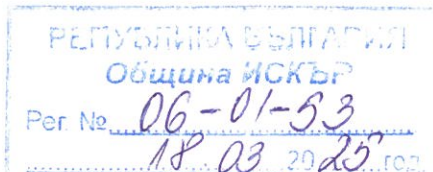 РЕПУБЛИКА БЪЛГАРИЯ
Община ИСКЪР
Рег. № 06-01-53
18.03 2025 год